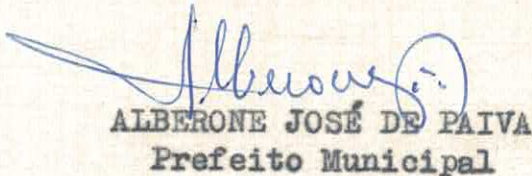 Alberone
ALBERONE JOSÉ DE PAIVA
Prefeito Municipal